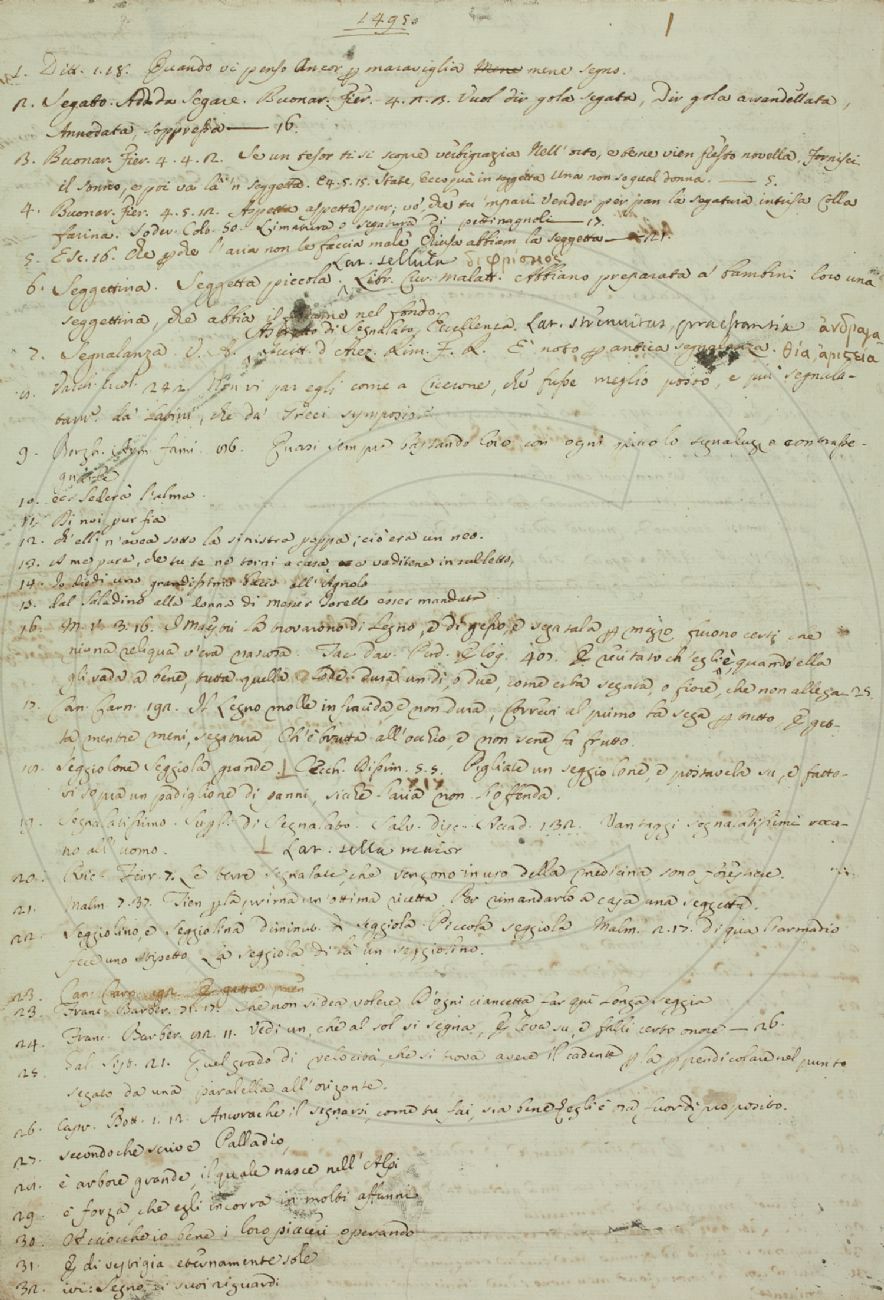 1495.
1
1. Ditt. 1. 18. Quando vi penso Ancor p maraviglia mene segno.
2. Segato. Add. da Segare. Buonar. Fier. 4. 2. 3. Vuol dir gola segata, Dir gola arrandellata,
Annodata, soppressa — 16.
3. Buonar. Fier. 4. 4. 12. Se un tesor ti si scopre Nell' orto, e bene vien questo novella, Fornisci
il e poi va là 'n seggetta. E 4. 5. 15. State, Ecco quà in seggetta Una non so qual donna. — 5.
4. Buonar. Fier. 4. 5. 12. Aspetta aspetta pur, vo' che tu 'mpari Vender per pan la segatura intrisa Colla
farina. Soder. Colt. 50. Limatura o segatura di — 17.
5. Esc. 16. Che pche l'aria non le faccia male Chiusa abbiam la seggetta — 21.
Lat. sellula δίφρισκος
6. Seggettina. Seggetta piccola. Libr. Cur. Malatt. Abbiano preparata a' bambini loro una
seggettina, che abbia il forame nel fondo.
Astratto di Segnalato, Eccellenza. Lat. strenuitas, praestantia ἀνδραγα-
7. Segnalanza V. A. Guitt. d' Arez. Rim. F. R. È noto p antica segnalanza. θία, ἀριστεία
8. Varch. Ercol. 242. Non vi par egli come a Cicerone, che fusse meglio posto, e più segnala-
tam. da' Latini, che da' Greci symposio
9. Borgh. Arm. fam. 46. Quasi sempre bastando loro con ogni piccolo segnaluzzo contrasse-
gnarle
10. ecc sederà Balma.
11. Di noi pur fia
12. Ch'elli n'avea sotto la sinistra poppa; ciò era un neo.
13. A me pare, che tu te ne torni a casa e vaditene in sul letto,
14. Io diedi uno grandissimo sacco all' Agnolo
15. dal Saladino alla donna di messer Torello esser mandata
16. M. V. 3. 16. I Maestri la trovarono di legno, e di gesso, e segatala p mezzo, furono certi che
niuna reliqua v'era nascosa. Tac. Dav. Perd. Eloq. 407. E recitato ch'egli è, quando ella
gli vada a bene, tutta quella lode dura un dì, o due, come erba segata, o fiore, che non allega — 25.
17. Can. Carn. 192. Il Legno molle infracida, e non dura, Correvi al primo la sega p tutto, E get-
ta, mentre meni, segatura, Ch'è brutta all'occhio, e non sene fa frutto.
18. Seggiolone Seggiola grande. Cecch. Dissim. 5. 5. Pigliate un seggiolone, e postavela su, e fatto-
vi sopra un padiglione di panni, sicche l'aria non l'offenda.
19. Segnalatissimo. Superl. di Segnalato. Salv. disc. Accad. 132. Vantaggi segnalatissimi reca-
no all'uomo. Lat. sella maior
20. Ricett. Fior. 7. Le terre segnalate, che vengono in uso della medicina sono forestiere.
21. Malm. 7. 37. Tien p la prima un'ottima ricetta Per rimandarlo a casa una seggetta.
22. Seggiolino, e Seggiolina Diminut. di Seggiola Piccola seggiola Malm. 2. 17. di qua l'armadio
fece uno stipetto La seggiola di là un seggiolino.
23. Can. Carn. 192. E getta men
23. Franc. Barber. 71. 17. Che non si dea volere D'ogni ciancetta far qui longa seggia
24. Franc. Barber. 192. 11. Vedi un, che al sol si segna, E leva su, e falli certo onore — 26.
25. Gal. Sist. 21. Quel grado di velocità, che si trova avere il cadente p la ppendicolare nel punto
segato da una parallela all'orizonte.
26. Capr. Bott. 1. 12. Ancorache il segnarsi, come tu fai, sia bene, egli è ora fuor di proposito.
27. secondoche scrive Palladio,
28. è arbore grande, il quale nasce nell'Alpi
29. è forza, che egli incorra in molti affanni
30. i loro piaceri operando
31. E di servigia eternamente sole
32. ivi: Segno, i suoi riguardi